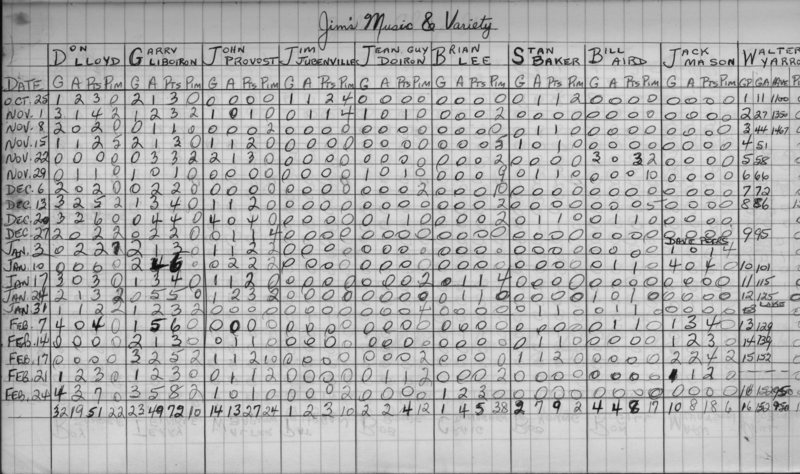 Jim's Music & Variety
DON LLOYD GARRY LIBOIRON JOHN PROVOST JIM JUBENVILLE JEAN GUY DOIRON BRIAN LEE STAN BAKER BILL AIRD JACK MASON WALTER YARRO
DATE G A Pts Pim G A Pts Pim G A Pts Pim G A Pts Pim G A Pts Pim G A Pts Pim G A Pts Pim G A Pts Pim G A Pts Pim GP GA AVE
OCT. 25 1 2 3 0 2 1 3 0 0 0 0 0 1 1 2 4 0 0 0 0 0 0 0 0 0 1 1 2 0 0 0 0 0 0 0 0 1 11 1100
NOV. 1 3 1 4 2 1 2 3 2 1 0 1 0 0 1 1 4 1 0 1 0 0 0 0 2 0 0 0 0 0 0 0 0 0 0 0 0 2 27 1350
NOV. 8 2 0 2 0 0 1 1 0 0 0 0 2 0 0 0 0 0 0 0 0 0 0 0 0 0 1 1 0 0 0 0 0 0 0 0 0 3 44 1467
NOV. 15 1 1 2 2 2 1 3 0 1 1 2 0 0 0 0 0 0 0 0 0 0 0 0 1 0 1 0 0 0 0 0 0 0 0 0 4 51
NOV. 22 0 0 0 0 0 3 3 2 2 1 3 0 0 0 0 0 0 0 0 0 0 0 0 2 0 0 0 0 3 0 3 2 0 0 0 0 5 58
NOV. 29 0 1 1 0 1 0 1 0 0 0 0 0 0 0 0 0 1 0 1 0 0 0 0 0 1 1 0 0 0 0 10 0 0 0 0 6 66
DEC. 6 2 0 2 0 0 2 2 0 0 0 0 0 0 0 0 0 0 0 0 2 0 0 0 10 0 0 0 0 0 0 0 0 0 0 0 0 7 72
DEC. 13 3 2 5 2 1 3 4 0 1 1 2 0 0 0 0 0 0 0 0 0 0 0 0 2 0 0 0 0 0 0 0 5 0 0 0 0 8 86
DEC. 20 3 2 6 0 0 4 4 0 4 0 4 0 0 0 0 0 0 1 1 0 0 0 0 2 0 1 1 0 0 1 1 0 0 0 0 0
DEC. 27 2 0 2 2 0 2 2 0 0 1 1 4 0 0 0 0 0 0 0 0 0 0 0 0 0 0 0 0 0 0 0 0 0 0 0 0 9 95
DAVE PEERS
JAN. 3 0 2 2 2 1 3 0 1 1 2 2 0 0 0 0 0 0 0 0 0 0 0 0 0 0 0 0 0 0 0 0 1 0 1 4
JAN. 10 0 0 0 0 2 4 6 0 0 2 2 2 0 0 0 0 0 0 0 0 0 0 0 0 0 0 0 0 0 1 1 0 4 0 4 0 10 101
JAN. 17 3 0 3 0 1 3 4 0 1 1 2 0 0 0 0 0 0 0 0 2 0 1 1 4 0 0 0 0 0 0 0 0 0 0 0 0 11 115
JAN. 24 2 1 3 2 0 5 5 0 1 2 3 2 0 0 0 0 0 0 0 0 0 1 1 0 0 0 0 0 1 0 1 0 0 0 0 0 12 125
JAN. 31 1 1 2 2 1 2 3 2 0 0 0 0 0 0 0 0 0 0 0 4 0 0 0 0 0 0 0 0 0 0 0 0 0 0 0 0 LAKE
FEB. 7 4 0 4 0 1 5 6 0 0 0 0 0 0 0 0 0 0 0 0 0 0 0 0 0 0 1 1 0 0 1 1 0 1 3 4 0 13 129
FEB. 14 0 0 0 0 2 1 3 0 0 1 1 0 0 0 0 0 0 0 0 0 0 0 0 0 0 1 1 0 0 0 0 0 1 2 3 0 14 139
FEB. 17 0 0 0 0 3 2 5 2 1 1 2 10 0 0 0 0 0 0 0 2 0 0 0 0 1 1 2 0 0 0 0 0 2 2 4 2 15 152
FEB. 21 1 2 3 0 1 2 3 0 0 1 1 2 0 0 0 0 0 1 1 2 0 0 0 2 0 0 0 0 0 0 0 0 1 1 2 0
FEB. 24 4 2 7 0 3 5 8 2 1 0 1 0 0 0 0 2 0 0 0 0 1 2 3 0 0 0 0 0 0 0 0 0 0 0 0 0 16 152 950
32 19 51 22 23 49 72 10 14 13 27 24 1 2 3 10 2 2 4 12 1 4 5 38 2 7 9 2 4 4 8 17 10 8 18 6 16 152 950